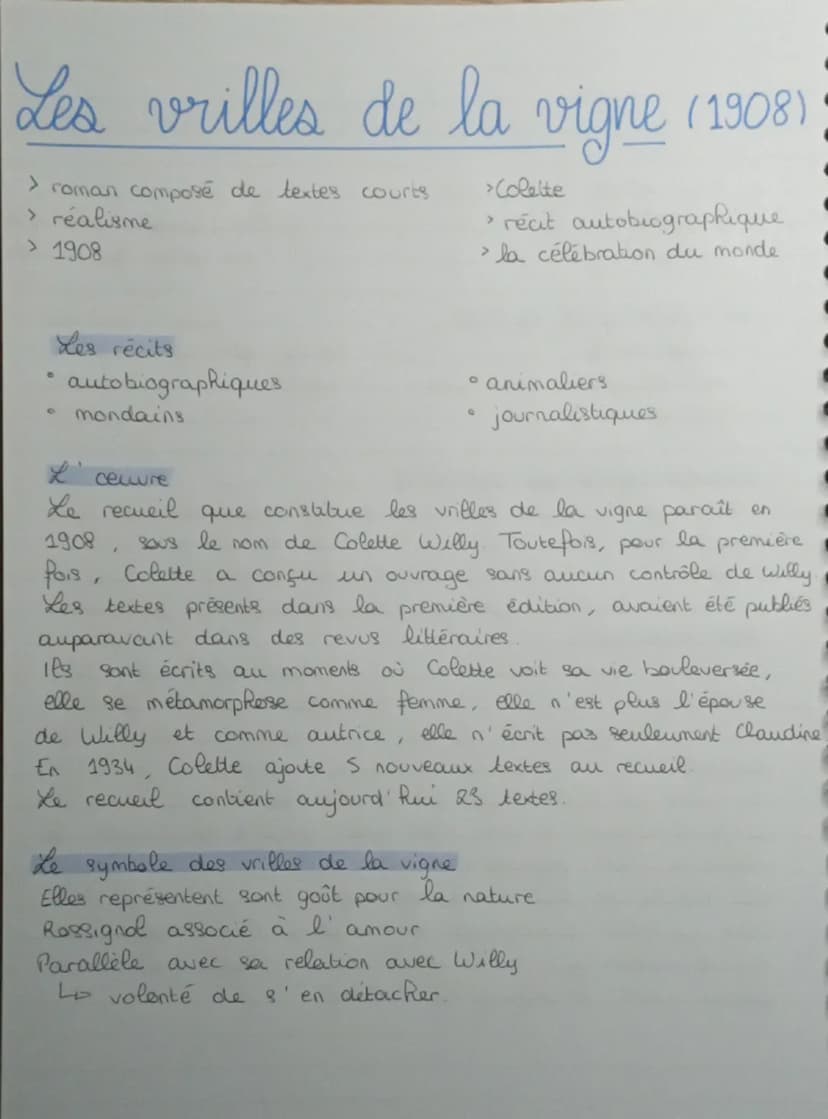 Les vrilles de la vigne (1908)
> roman composé de textes courts
> réalisme
> 1908
> Colette
> récit autobiographique
> la célébration du monde
Les récits
° autobiographiques
° mondains
° animaliers
° journalistiques
L'œuvre
Le recueil que constitue les vrilles de la vigne paraît en
1908, sous le nom de Colette Willy. Toutefois, pour la première
fois, Colette a conçu un ouvrage sans aucun contrôle de Willy.
Les textes présents dans la première édition, avaient été publiés
auparavant dans des revus littéraires.
Ils sont écrits au moments où Colette voit sa vie bouleversée,
elle se métamorphose comme femme, elle n'est plus l'épouse
de Willy et comme autrice, elle n'écrit pas seuleument Claudine
En 1934, Colette ajoute 5 nouveaux textes au recueil.
Le recueil contient aujourd'hui 23 textes.
Le symbole des vrilles de la vigne
Elles représentent sont goût pour la nature
Rossignol associé à l'amour
Parallèle avec sa relation avec Willy
↳ volonté de s'en détacher.